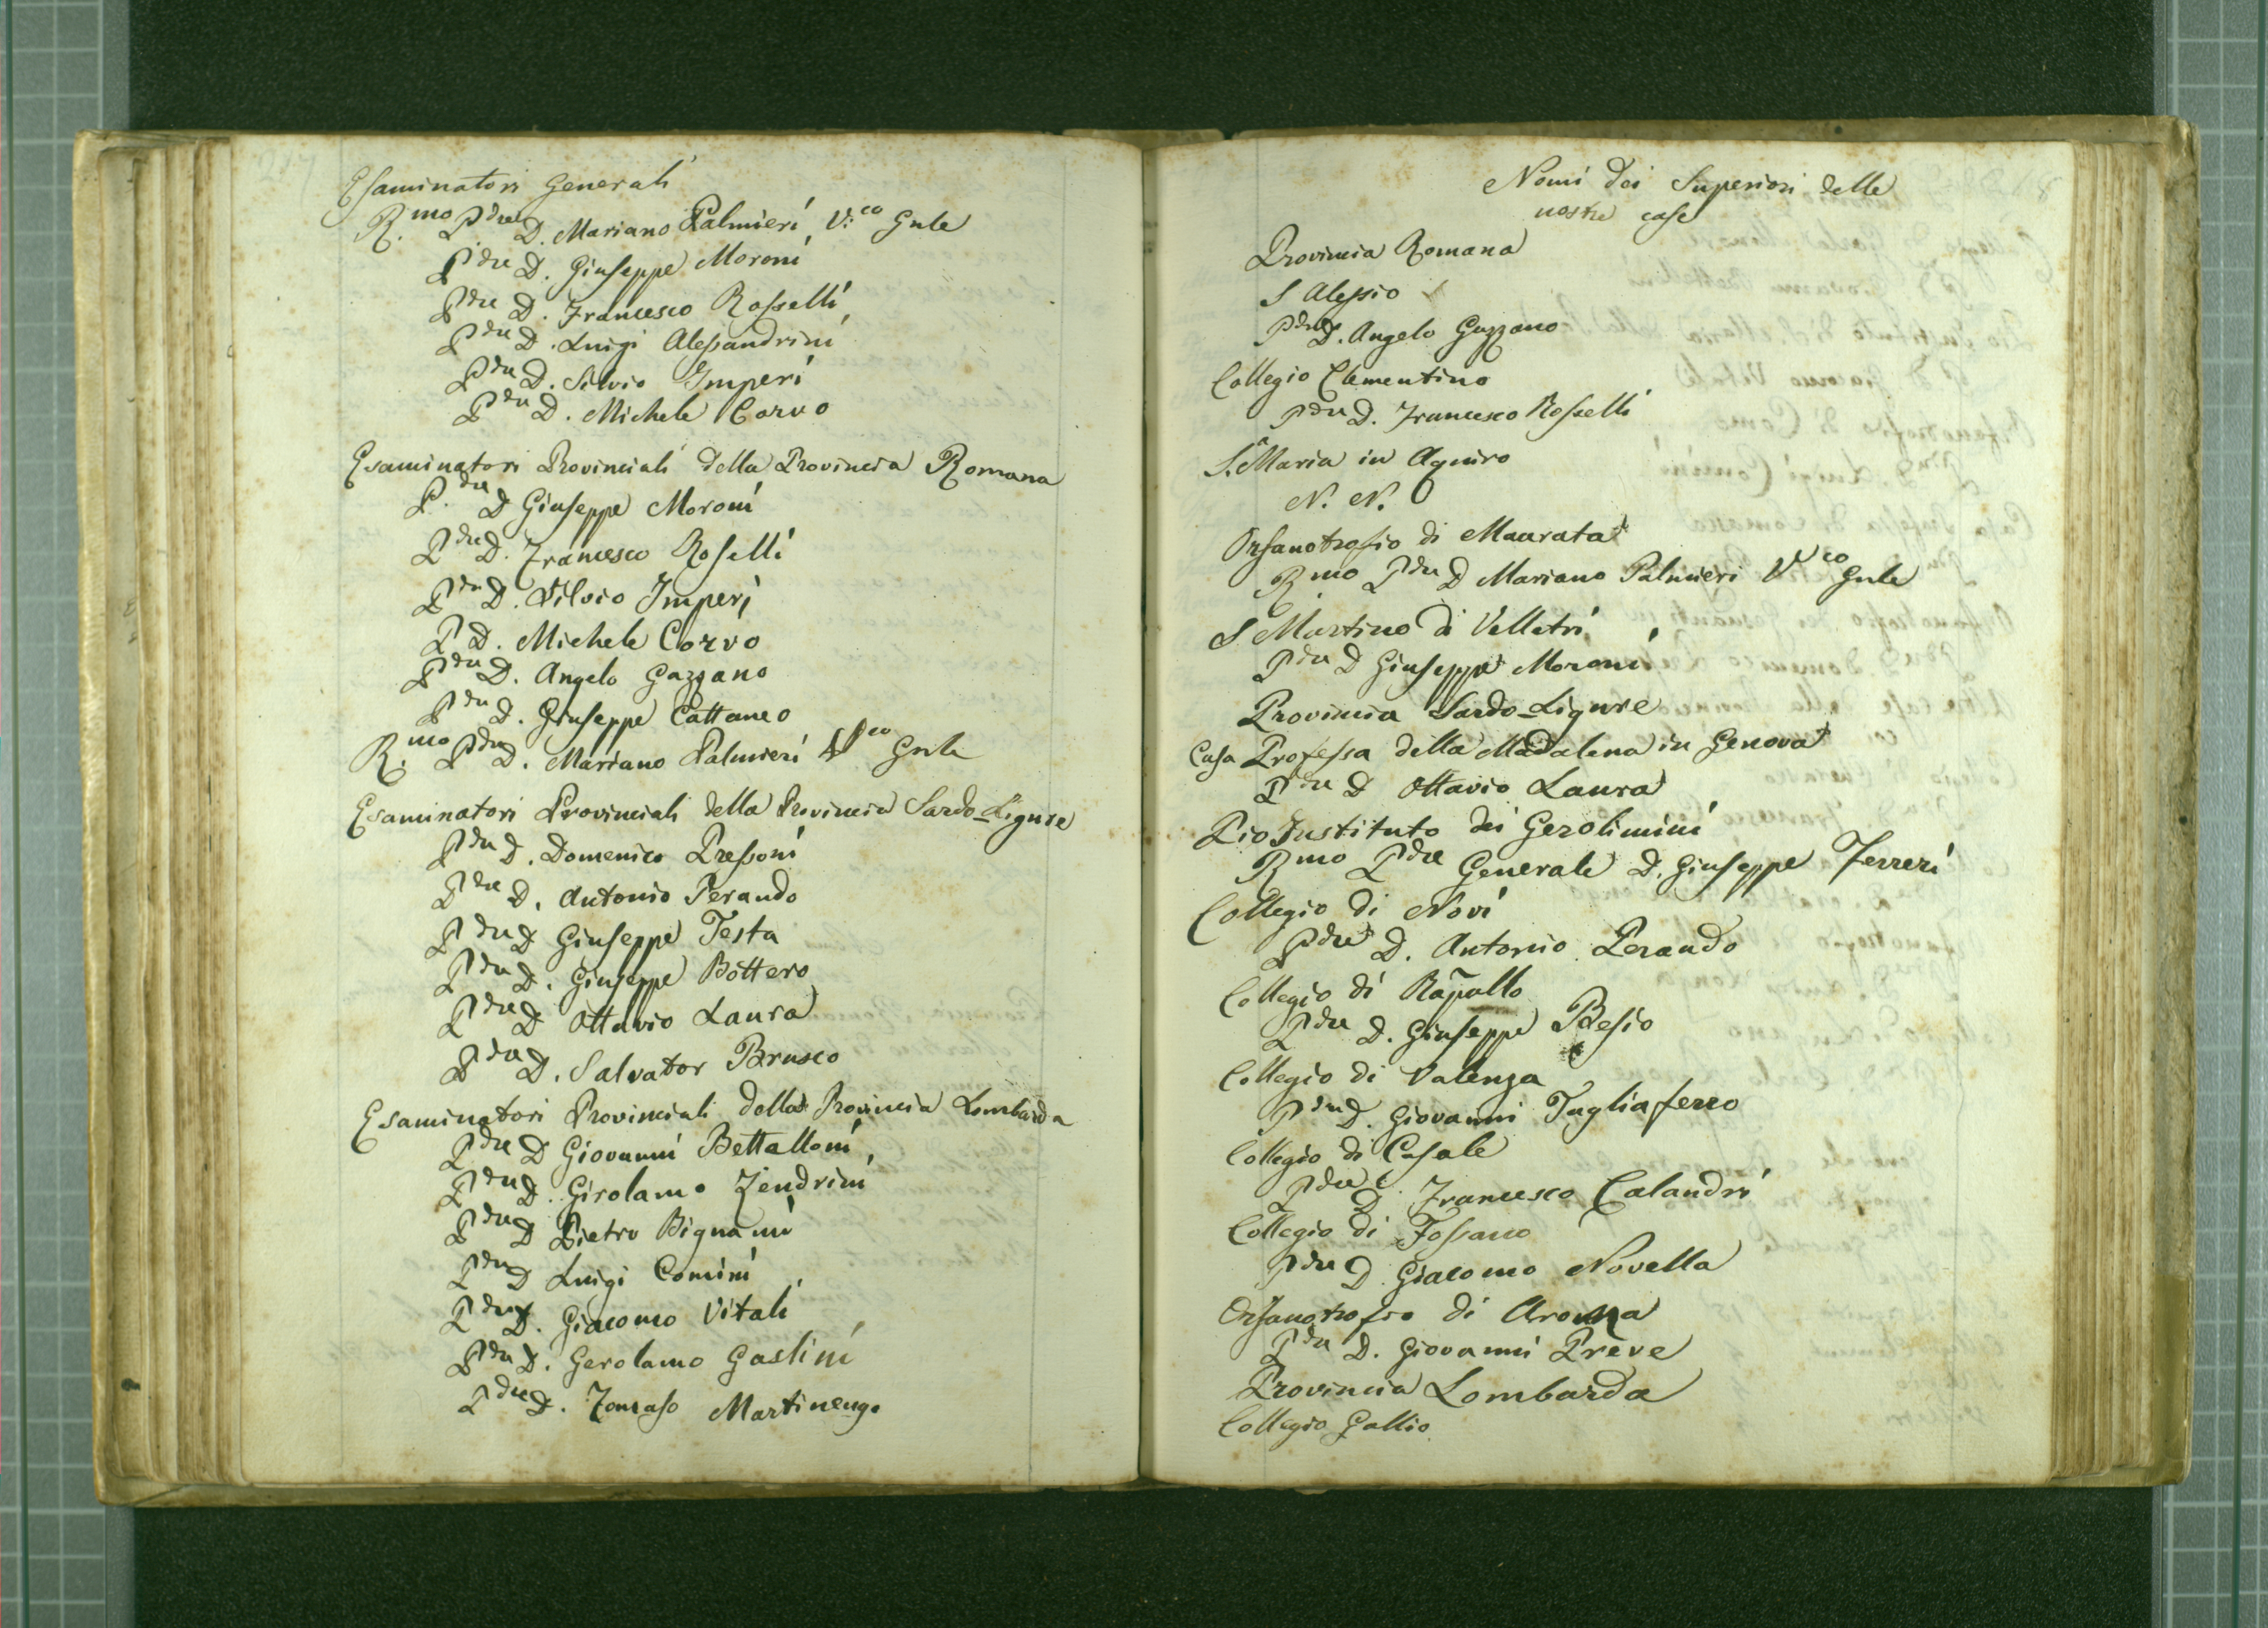 Esaminatori Generali
R.mo Pdre D. Mariano Palmieri V:co Gnle
Pdre D. Giuseppe Moroni
Pdre D. Francesco Rosselli
Pdre D. Luigi Alessandrini
Pdre D. Silvio Imperi
Pdre D. Michele Corvo
Esaminatori Provinciali della Provincia Romana
P.dre D Giuseppe Moroni
Pdre D. Francesco Roselli
Pdre D. Silvio Imperi
P D. Michele Corvo
Pdre D. Angelo Gazzano
Pdre D. Giuseppe Cattaneo
R.mo Pdre D. Mariano Palmieri Vco Gnle
Esaminatori Provinciali della Provincia Sardo-Ligure
Pdre D. Domenico Pressoni
Pdre D. Antonio Perando
Pdre D Giuseppe Testa
Pdre D. Giuseppe Bottero
Pdre D Ottavio Laura
Pdre D. Salvator Brusco
Esaminatori Provinciali della Provincia Lombarda
Pdre D Giovanni Bettalloni
Pdre D. Girolamo Zendrini
Pdre D Pietro Bignami
Pdre D Luigi Comini
Pdre D. Giacomo Vitali
Pdre D. Gerolamo Gaslini
Pdre D. Tomaso Martinengo
Nomi dei Superiori delle
nostre case
Provincia Romana
S Alessio
Pdre D. Angelo Gazzano
Collegio Clementino
Pdre D. Francesco Rosselli
S.a Maria in Aquiro
N. N.
Orfanotrofio di Macerata
R.mo Pdre D Mariano Palmieri Vco Gnle
S Martino di Velletri
Pdre D Giuseppe Moroni
Provincia Sardo-Ligure
Casa Professa della Madalena in Genova
Pdre D Ottavio Laura
Pio Instituto dei Gerolimini
Rmo Pdre Generale D. Giuseppe Ferreri
Collegio di Novi
Pdre D. Antonio Perando
Collegio di Rapallo
Pdre D. Giuseppe Besio
Collegio di Valenza
Pdre D. Giovanni Tagliaferro
Collegio di Casale
Pdre D. Francesco Calandri
Collegio di Fossano
Pdre D. Giacomo Novella
Orfanotrofio di Arona
Pdre D. Giovanni Preve
Provincia Lombarda
Collegio Gallio